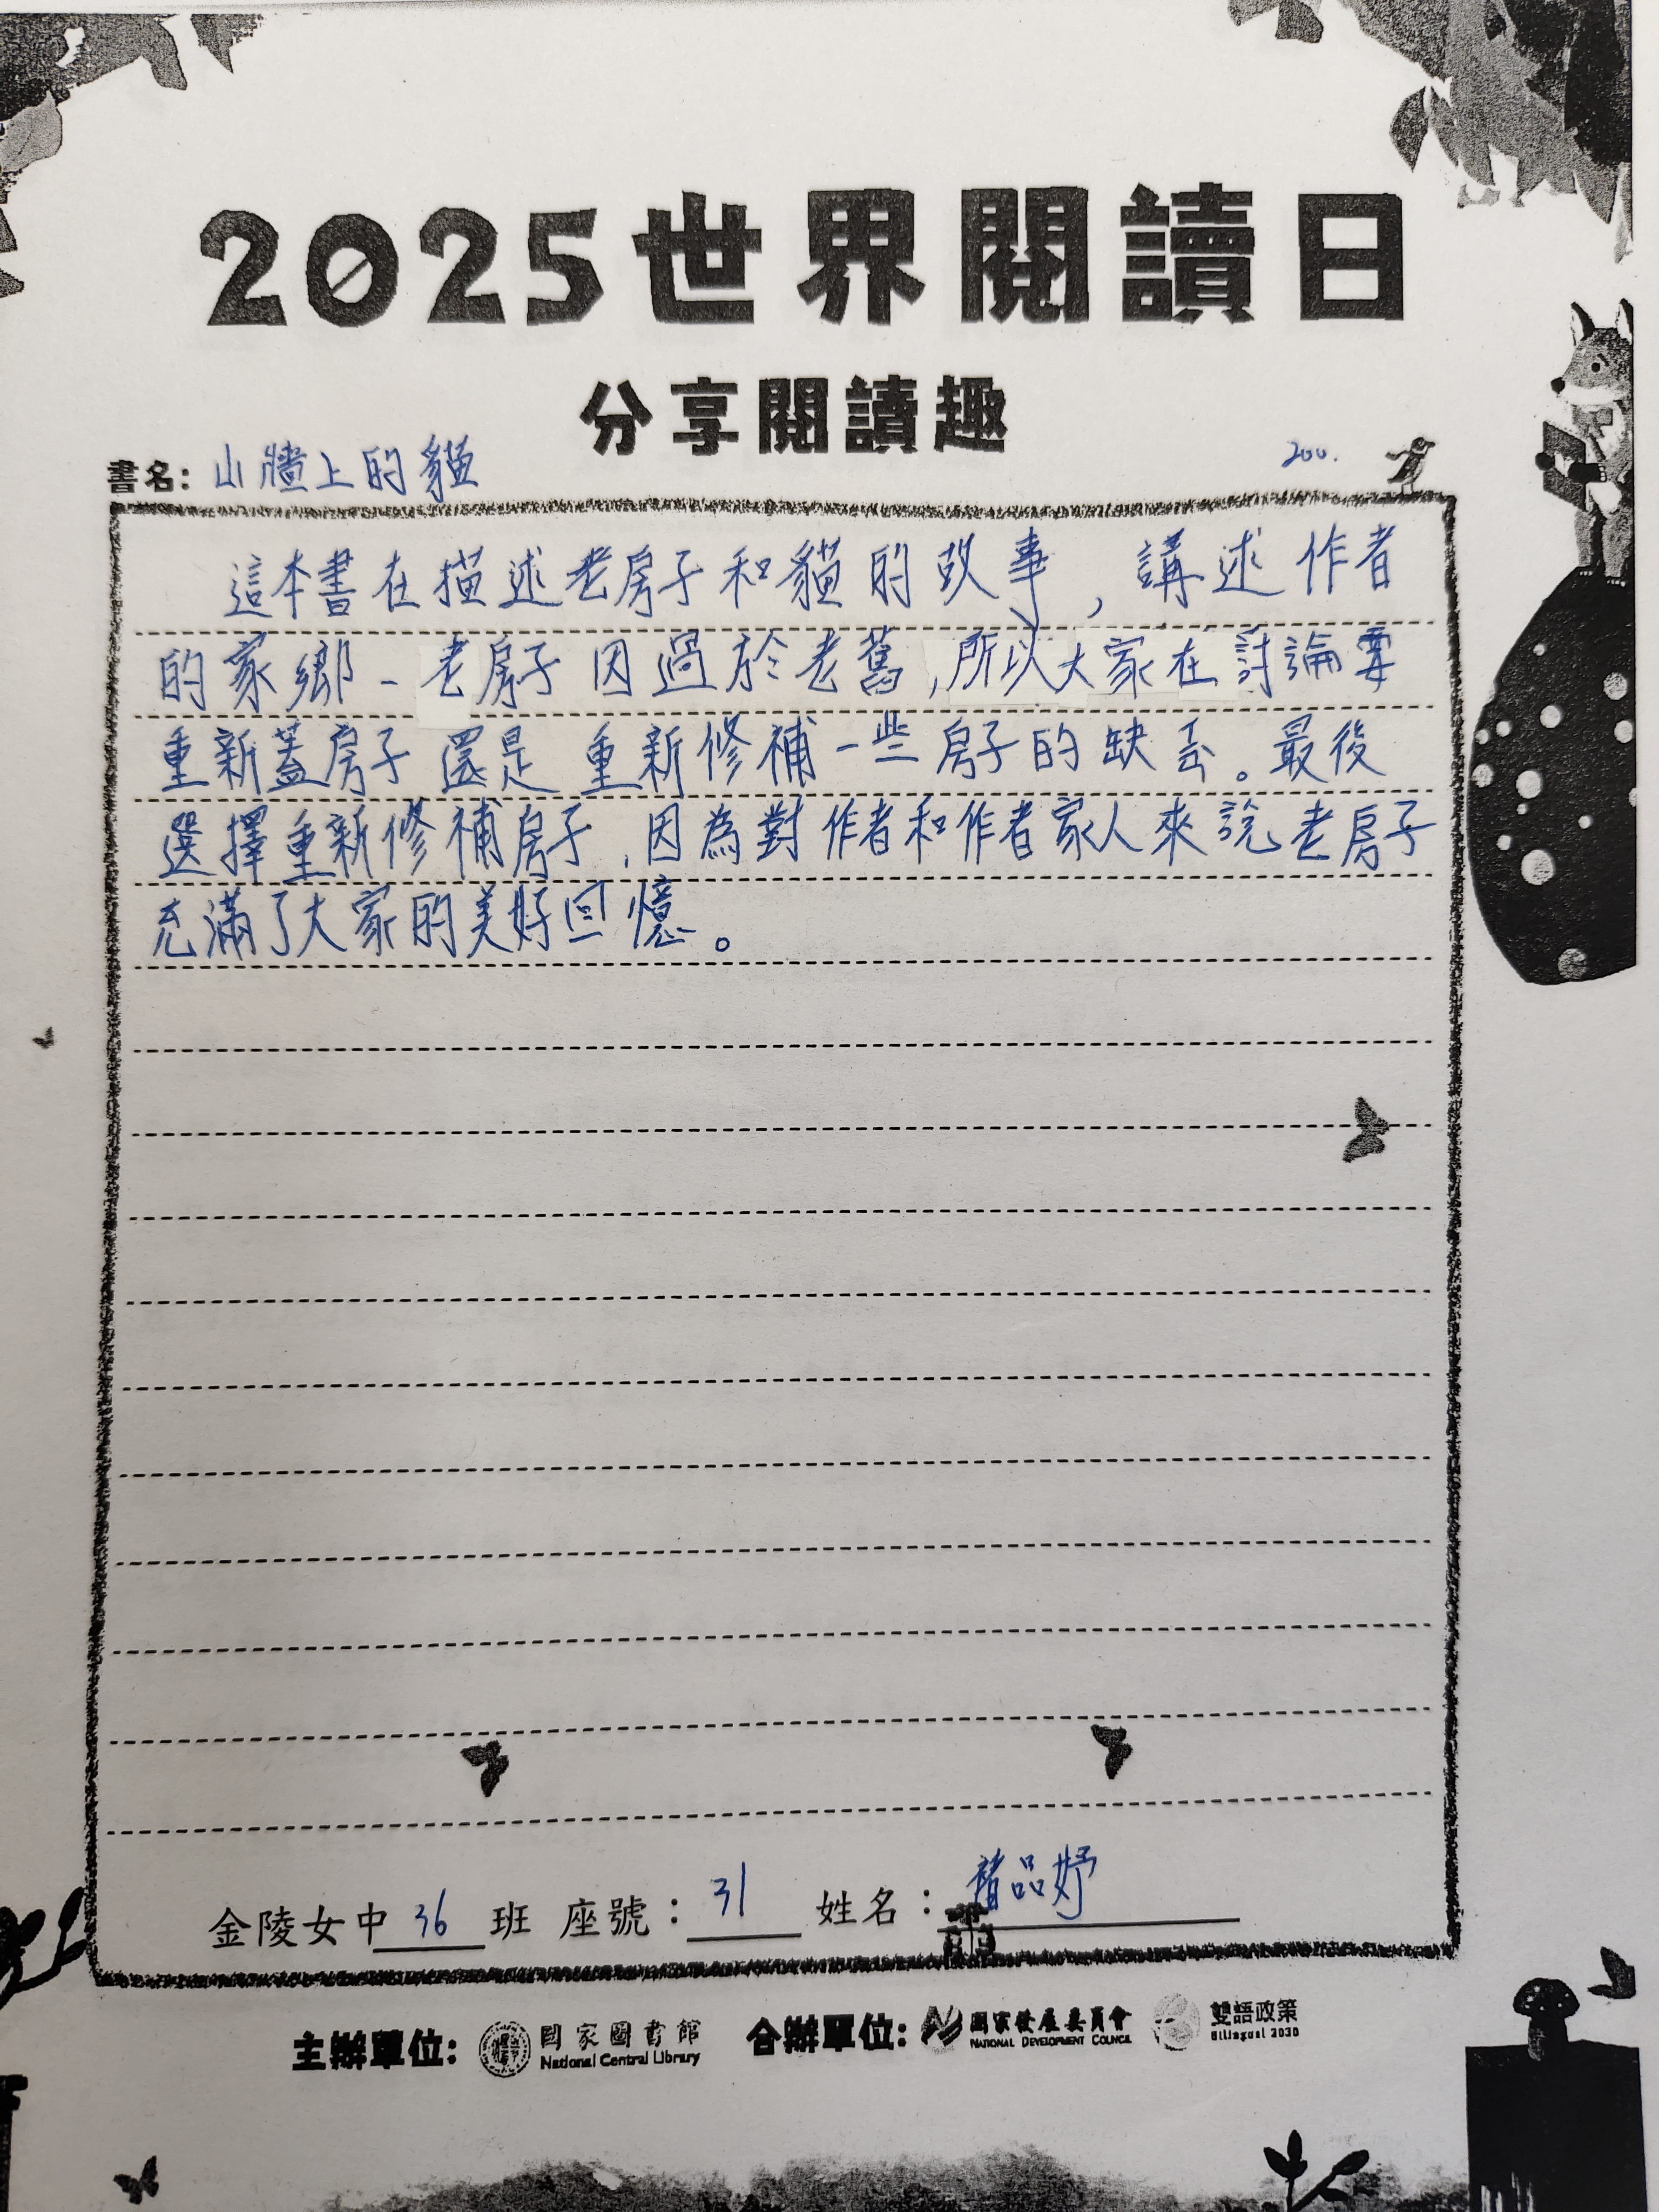 2025世界閱讀日
分享閱讀趣
書名：山牆上的貓
200.
這本書在描述老房子和貓的故事，講述作者
的家鄉－老房子因過於老舊，所以大家在討論要
重新蓋房子還是重新修補一些房子的缺丟。最後
選擇重新修補房子，因為對作者和作者家人來說老房子
充滿了大家的美好回憶。
金陵女中36班 座號：31 姓名：品妤
主辦單位： 國家圖書館 National Central Library 合辦單位： 國家發展委員會 NATIONAL DEVELOPMENT COUNCIL 雙語政策 Bilingual 2030